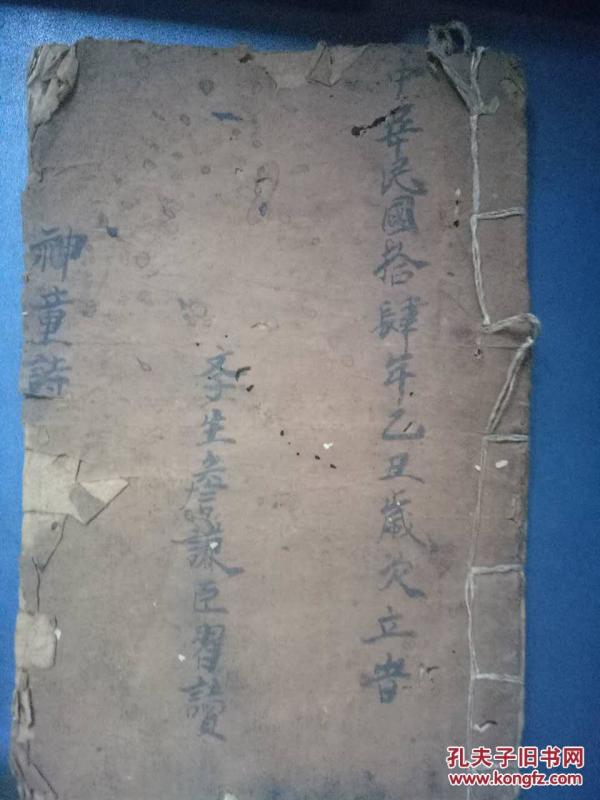 中華民國拾肆年乙丑歲次立春
斈生詹謙臣習讀
神童詩
孔夫子旧书网
www.kongfz.com